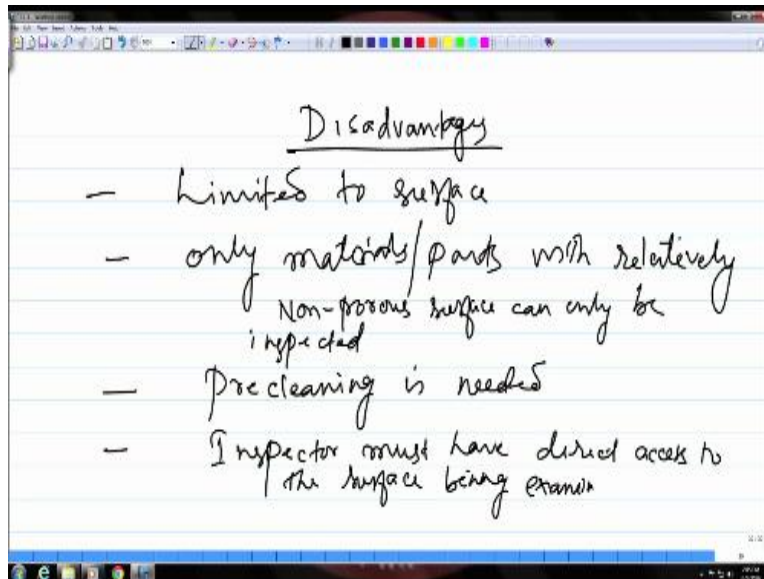 Disadvantages
- Limited to surface
- only materials/parts with relatively
Non-porous surface can only be
inspected
- Precleaning is needed
- Inspector must have direct access to
the surface being examin